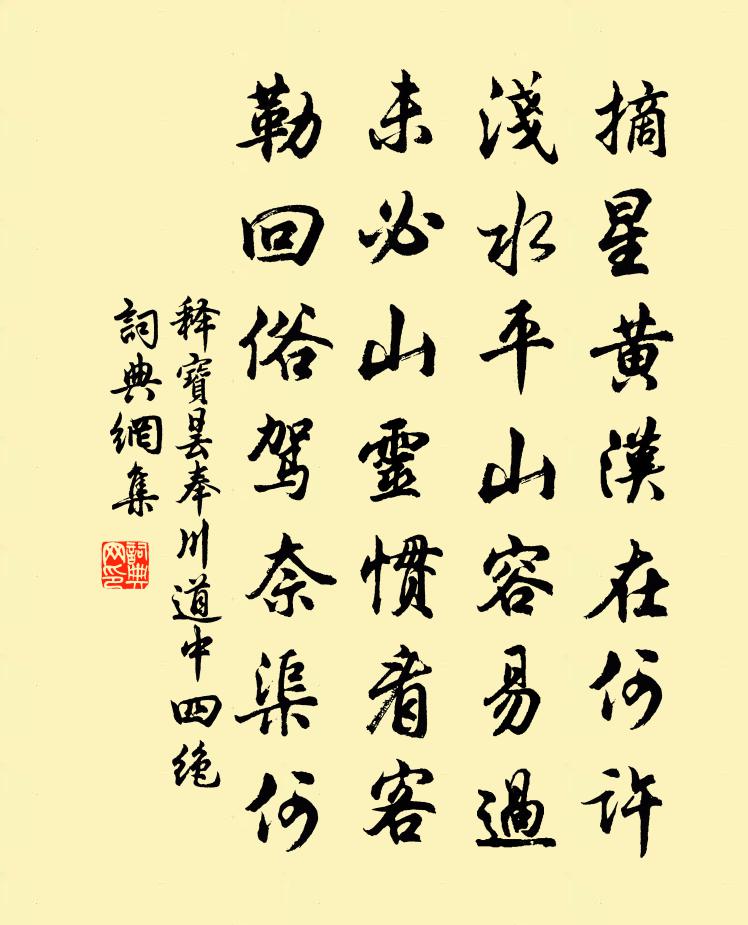 摘星黄漢在何許
淺水平山容易過
未必山靈慣看客
勒回俗駕奈渠何
释寶昙奉川道中四绝
詞典網集
詞典網印